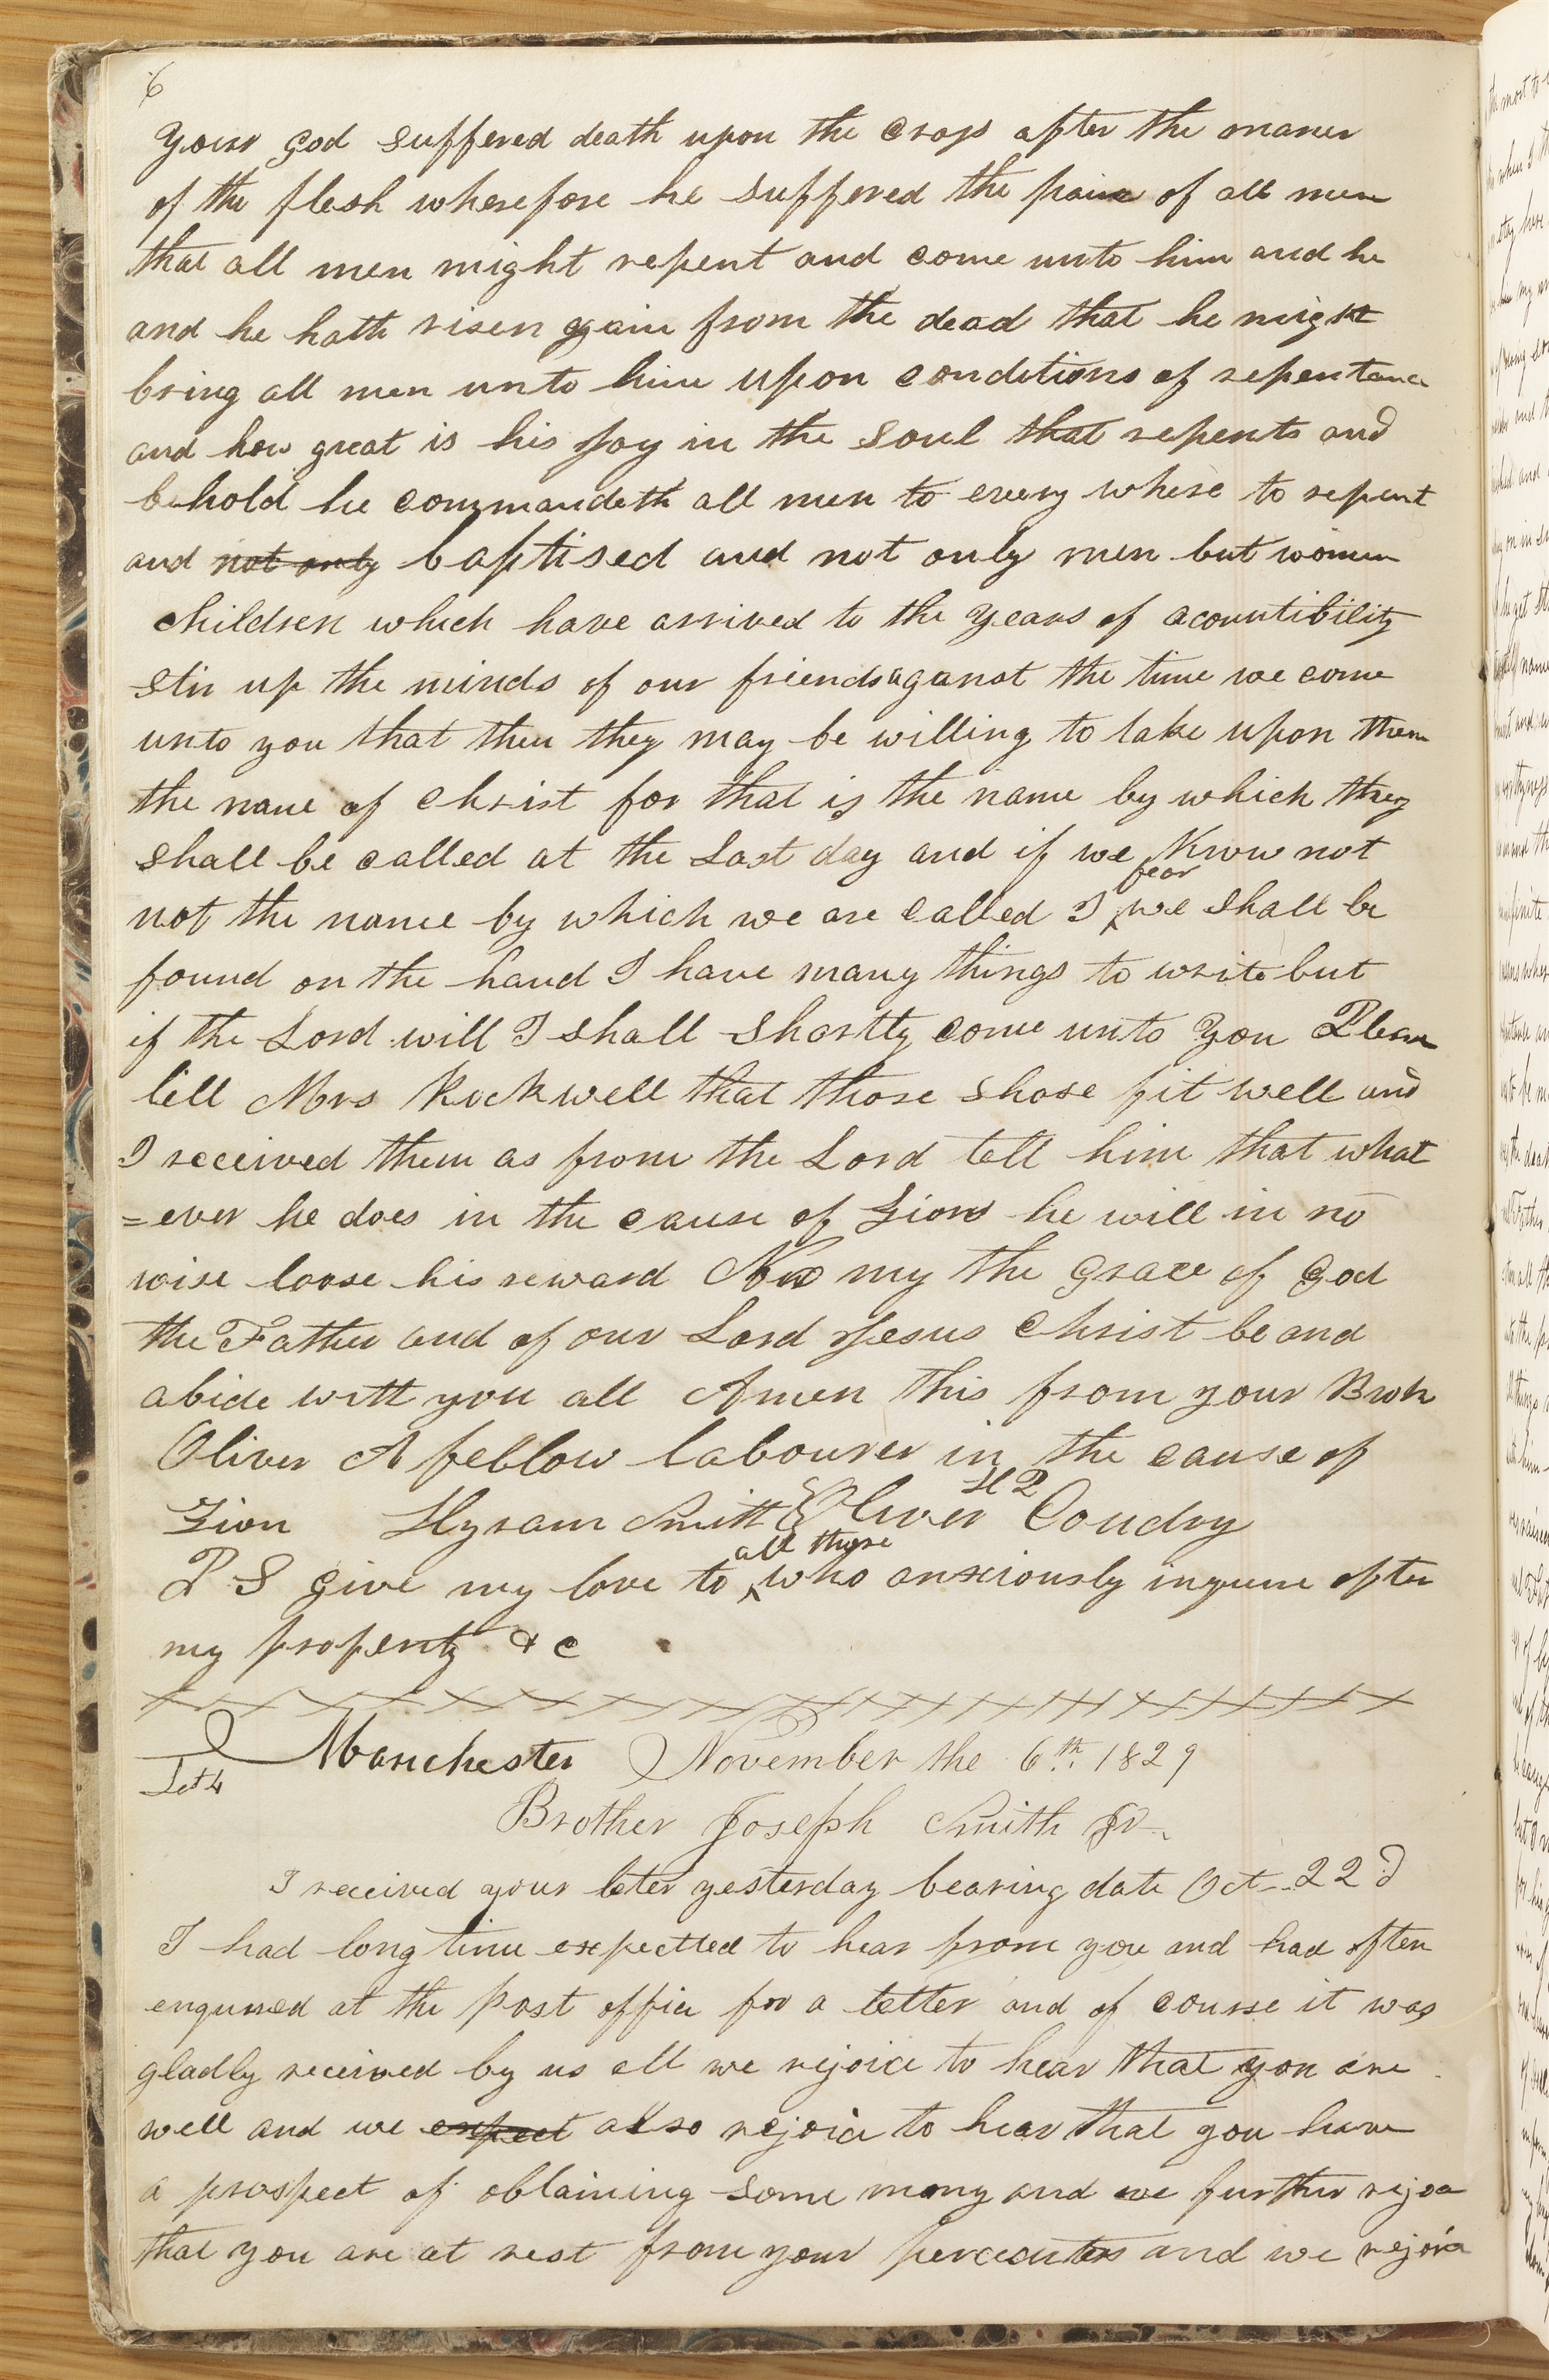 6
your god suffered death upon the cross after the maner
of the flesh wherefore he suffered the pain of all men
that all men might repent and come unto him and he
and he hath risen again from the dead that he might
bring all men unto him upon conditions of repentance
and how great is his joy in the soul that repents and
behold he commandeth all men to every where to repent
and not only baptised and not only men but women
children which have arrived to the years of acountibility
stir up the minds of our friends aganst the time we come
unto you that then they may be willing to take upon them
the name of christ for that is the name by which they
shall be called at the Last day and if we Know not
fear
not the name by which we are called I we shall be
found on the hand I have many things to write but
if the Lord will I shall Shortly come unto you Please
tell Mrs Rockwell that those shose fit well and
I received them as from the Lord tell him that what
=ever he does in the cause of Zion he will in no
wise loose his reward Now my the grace of god
the Father and of our Lord Jesus Christ be and
abide with you all Amen this from your Broh
Oliver A fellow labourer in the cause of
Zion Hyram Smith Oliver H P Coudry
all those
P S give my love to who anxiously inquire after
my property & c
Let 4 Manchester November the 6th 1829
Brother Joseph Smith Jr.
I received your leter yesterday bearing date Oct 22d
I had long time expectted to hear from you and had often
enquired at the Post office for a letter and of course it was
gladly received by us all we rejoice to hear that you are
well and we expect also rejoice to hear that you have
a prospect of obtaining some mony and we further rejoice
that you are at rest from your percecuters and we rejoice